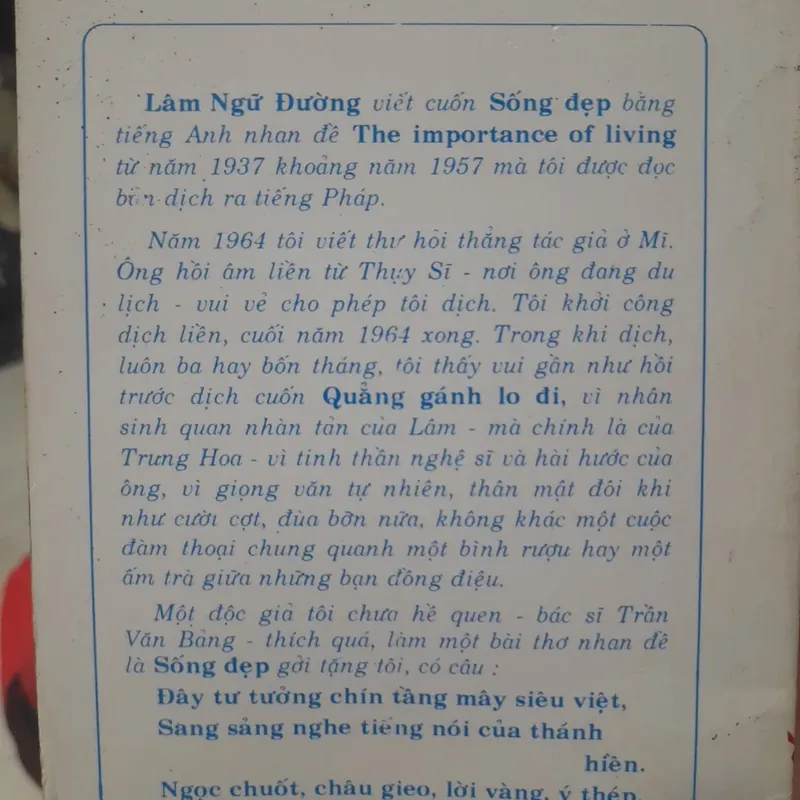 Lâm Ngữ Đường viết cuốn Sống đẹp bằng
tiếng Anh nhan đề The importance of living
từ năm 1937 khoảng năm 1957 mà tôi được đọc
bản dịch ra tiếng Pháp.
Năm 1964 tôi viết thư hỏi thẳng tác giả ở Mĩ.
Ông hồi âm liền từ Thụy Sĩ - nơi ông đang du
lịch - vui vẻ cho phép tôi dịch. Tôi khởi công
dịch liền, cuối năm 1964 xong. Trong khi dịch,
luôn ba hay bốn tháng, tôi thấy vui gần như hồi
trước dịch cuốn Quẳng gánh lo đi, vì nhân
sinh quan nhàn tản của Lâm - mà chính là của
Trung Hoa - vì tinh thần nghệ sĩ và hài hước của
ông, vì giọng văn tự nhiên, thân mật đôi khi
như cười cợt, đùa bỡn nữa, không khác một cuộc
đàm thoại chung quanh một bình rượu hay một
ấm trà giữa những bạn đồng điệu.
Một độc giả tôi chưa hề quen - bác sĩ Trần
Văn Bảng - thích quá, làm một bài thơ nhan đề
là Sống đẹp gởi tặng tôi, có câu :
Đây tư tưởng chín tầng mây siêu việt,
Sang sảng nghe tiếng nói của thánh
hiền.
Ngọc chuốt, châu gieo, lời vàng, ý thép.